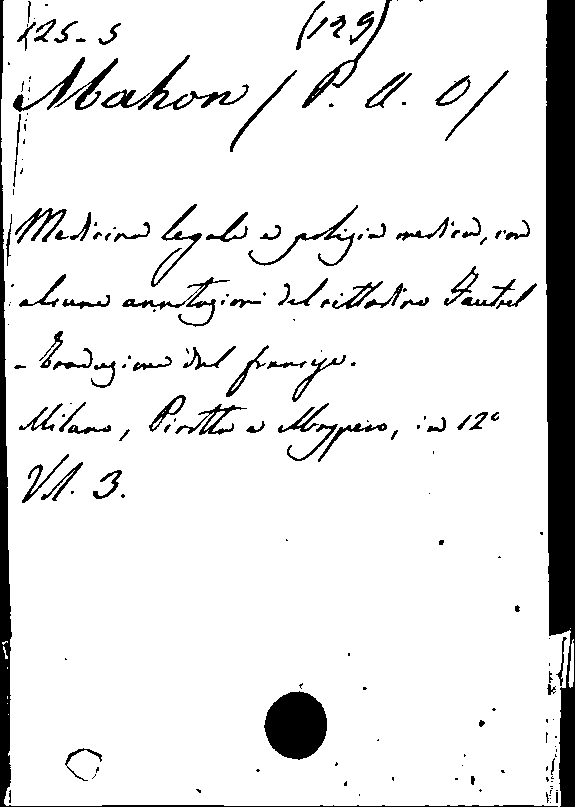 125-5 (129)
Mahon / P. A. O /
Medicina legale e polizia medica, con
alcune annotazioni del cittadino Fautrel
- Traduzione dal francese.
Milano, Pirotta e Maspero, in 12º
Vol. 3.